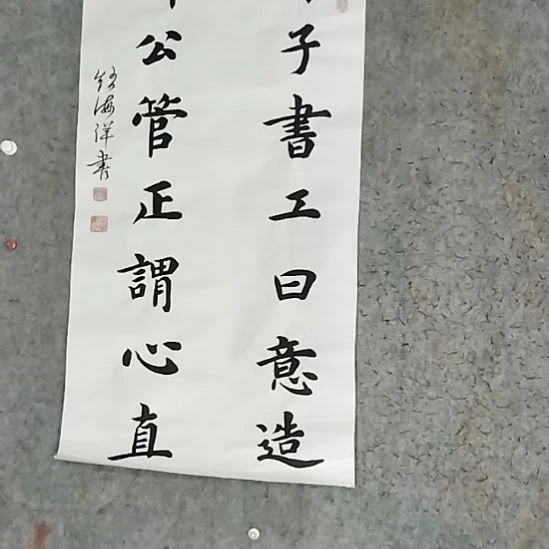 子書工曰意造
公管正謂心直
海洋書